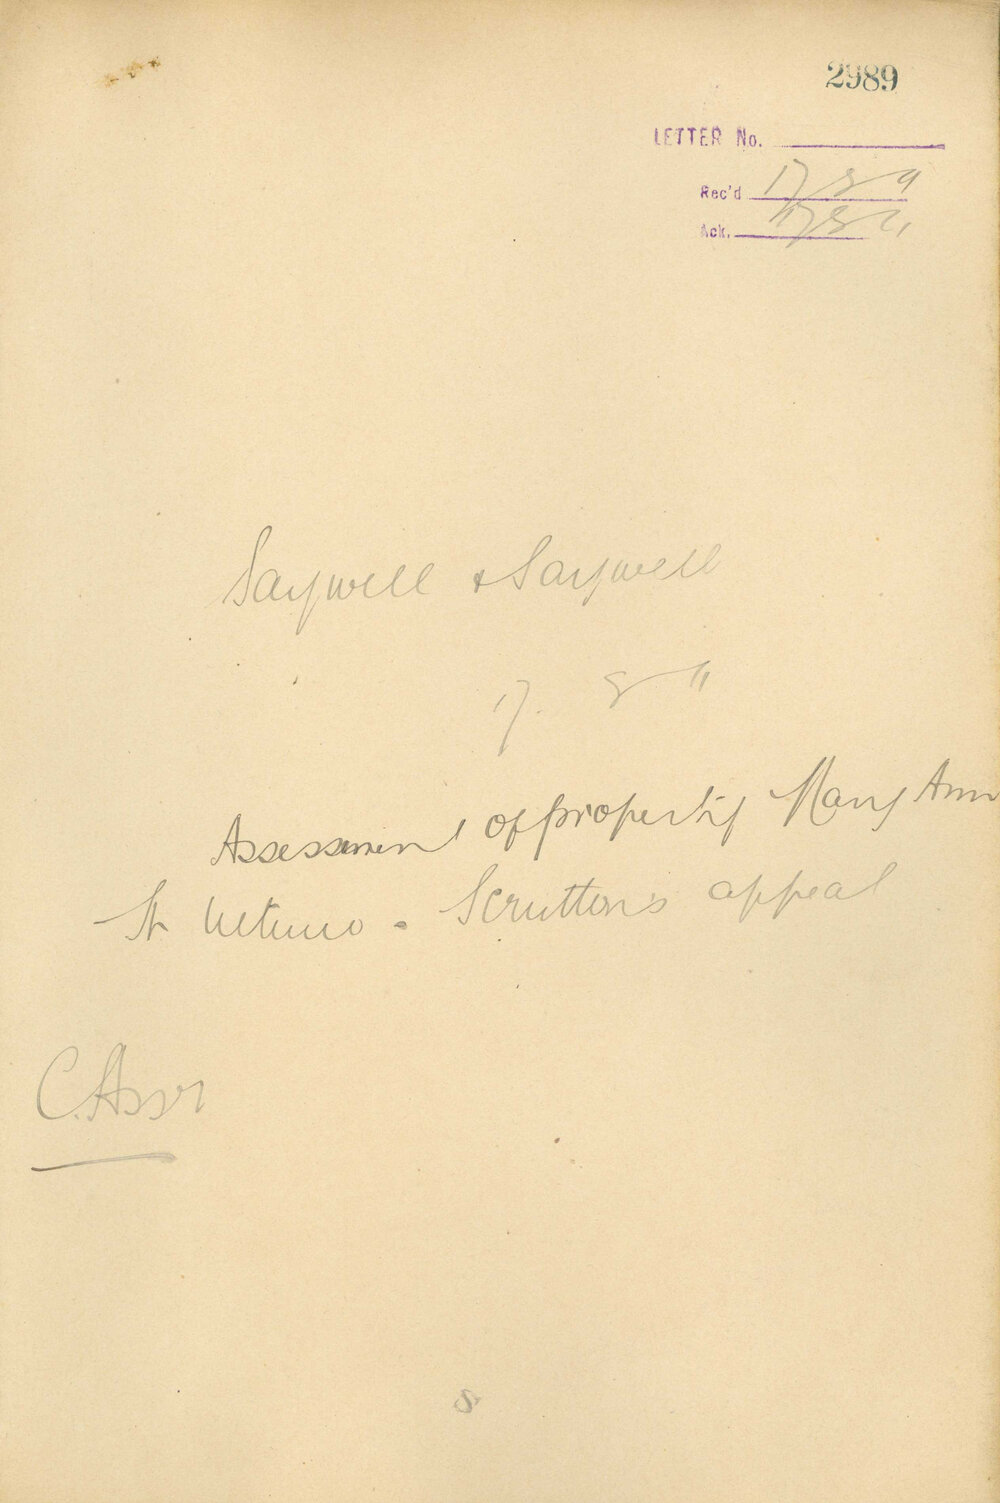 2989
LETTER No.
Rec'd 17 8 11
Ack. 17 8 11
Saywell & Saywell
17. 8 11
Assessment of property Mary Ann
St Ultimo - Scruttons appeal
C. Assr
8